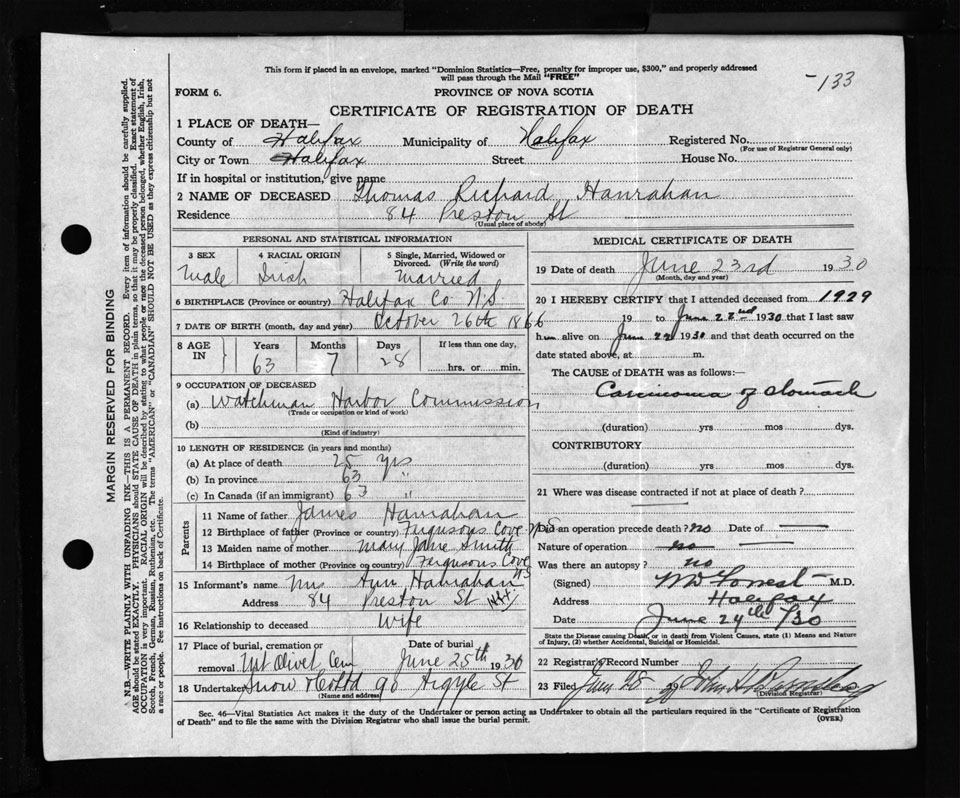 This form if placed in an envelope, marked "Dominion Statistics—Free, penalty for improper use, $300," and properly addressed
will pass through the Mail "FREE"
-133
FORM 6.
PROVINCE OF NOVA SCOTIA
CERTIFICATE OF REGISTRATION OF DEATH
1 PLACE OF DEATH—
County of Halifax Municipality of Halifax Registered No.
(For use of Registrar General only)
City or Town Halifax Street House No.
If in hospital or institution, give name
2 NAME OF DECEASED Thomas Richard Hanrahan
Residence 84 Preston St
(Usual place of abode)
PERSONAL AND STATISTICAL INFORMATION
3 SEX 4 RACIAL ORIGIN 5 Single, Married, Widowed or
Divorced. (Write the word)
Male Irish Married
6 BIRTHPLACE (Province or country) Halifax Co N.S.
7 DATE OF BIRTH (month, day and year) October 26th 1866
8 AGE IN Years Months Days If less than one day,
63 7 28 hrs. or min.
9 OCCUPATION OF DECEASED
(a) Watchman Harbor Commission
(Trade or occupation or kind of work)
(b)
(Kind of industry)
10 LENGTH OF RESIDENCE (in years and months)
(a) At place of death 25 yrs
(b) In province 63 "
(c) In Canada (if an immigrant) 63 "
Parents
11 Name of father James Hanrahan
12 Birthplace of father (Province or country) Fergusons Cove N.S
13 Maiden name of mother Mary Jane Smith
14 Birthplace of mother (Province or country) Fergusons Cove NS
15 Informant's name Mrs Ann Hanrahan
Address 84 Preston St Hfx
16 Relationship to deceased Wife
17 Place of burial, cremation or Date of burial
removal Mt Olivet Cem June 25th 1930
18 Undertaker Snow & Co Ltd 90 Argyle St
(Name and address)
MEDICAL CERTIFICATE OF DEATH
19 Date of death June 23rd 1930
(Month, day and year)
20 I HEREBY CERTIFY that I attended deceased from 1929
19 to June 22nd 1930 that I last saw
him alive on June 22 1930 and that death occurred on the
date stated above, at m.
The CAUSE of DEATH was as follows:—
Carcinoma of stomach
(duration) yrs mos dys.
CONTRIBUTORY
(duration) yrs mos dys.
21 Where was disease contracted if not at place of death?
Did an operation precede death? no Date of
Nature of operation no
Was there an autopsy? no
(Signed) WD Forrest M.D.
Address Halifax
Date June 24th /30
State the Disease causing Death, or in death from Violent Causes, state (1) Means and Nature
of Injury, (2) whether Accidental, Suicidal or Homicidal.
22 Registrar's Record Number
23 Filed 28 John
(Division Registrar)
Sec. 46—Vital Statistics Act makes it the duty of the Undertaker or person acting as Undertaker to obtain all the particulars required in the "Certificate of Registration
of Death" and to file the same with the Division Registrar who shall issue the burial permit.
(OVER)
MARGIN RESERVED FOR BINDING
N.B.—WRITE PLAINLY WITH UNFADING INK—THIS IS A PERMANENT RECORD. Every item of information should be carefully supplied.
AGE should be stated EXACTLY. PHYSICIANS should STATE CAUSE OF DEATH in plain terms, so that it may be properly classified. Exact statement of
OCCUPATION is very important. RACIAL ORIGIN will be described by stating to what people or race the deceased person belonged, whether English, Irish,
Scotch, French, German, Russian, Ruthenian, etc. The terms "AMERICAN" or "CANADIAN" SHOULD NOT BE USED as they express citizenship but not
a race or people. See instructions on back of Certificate.